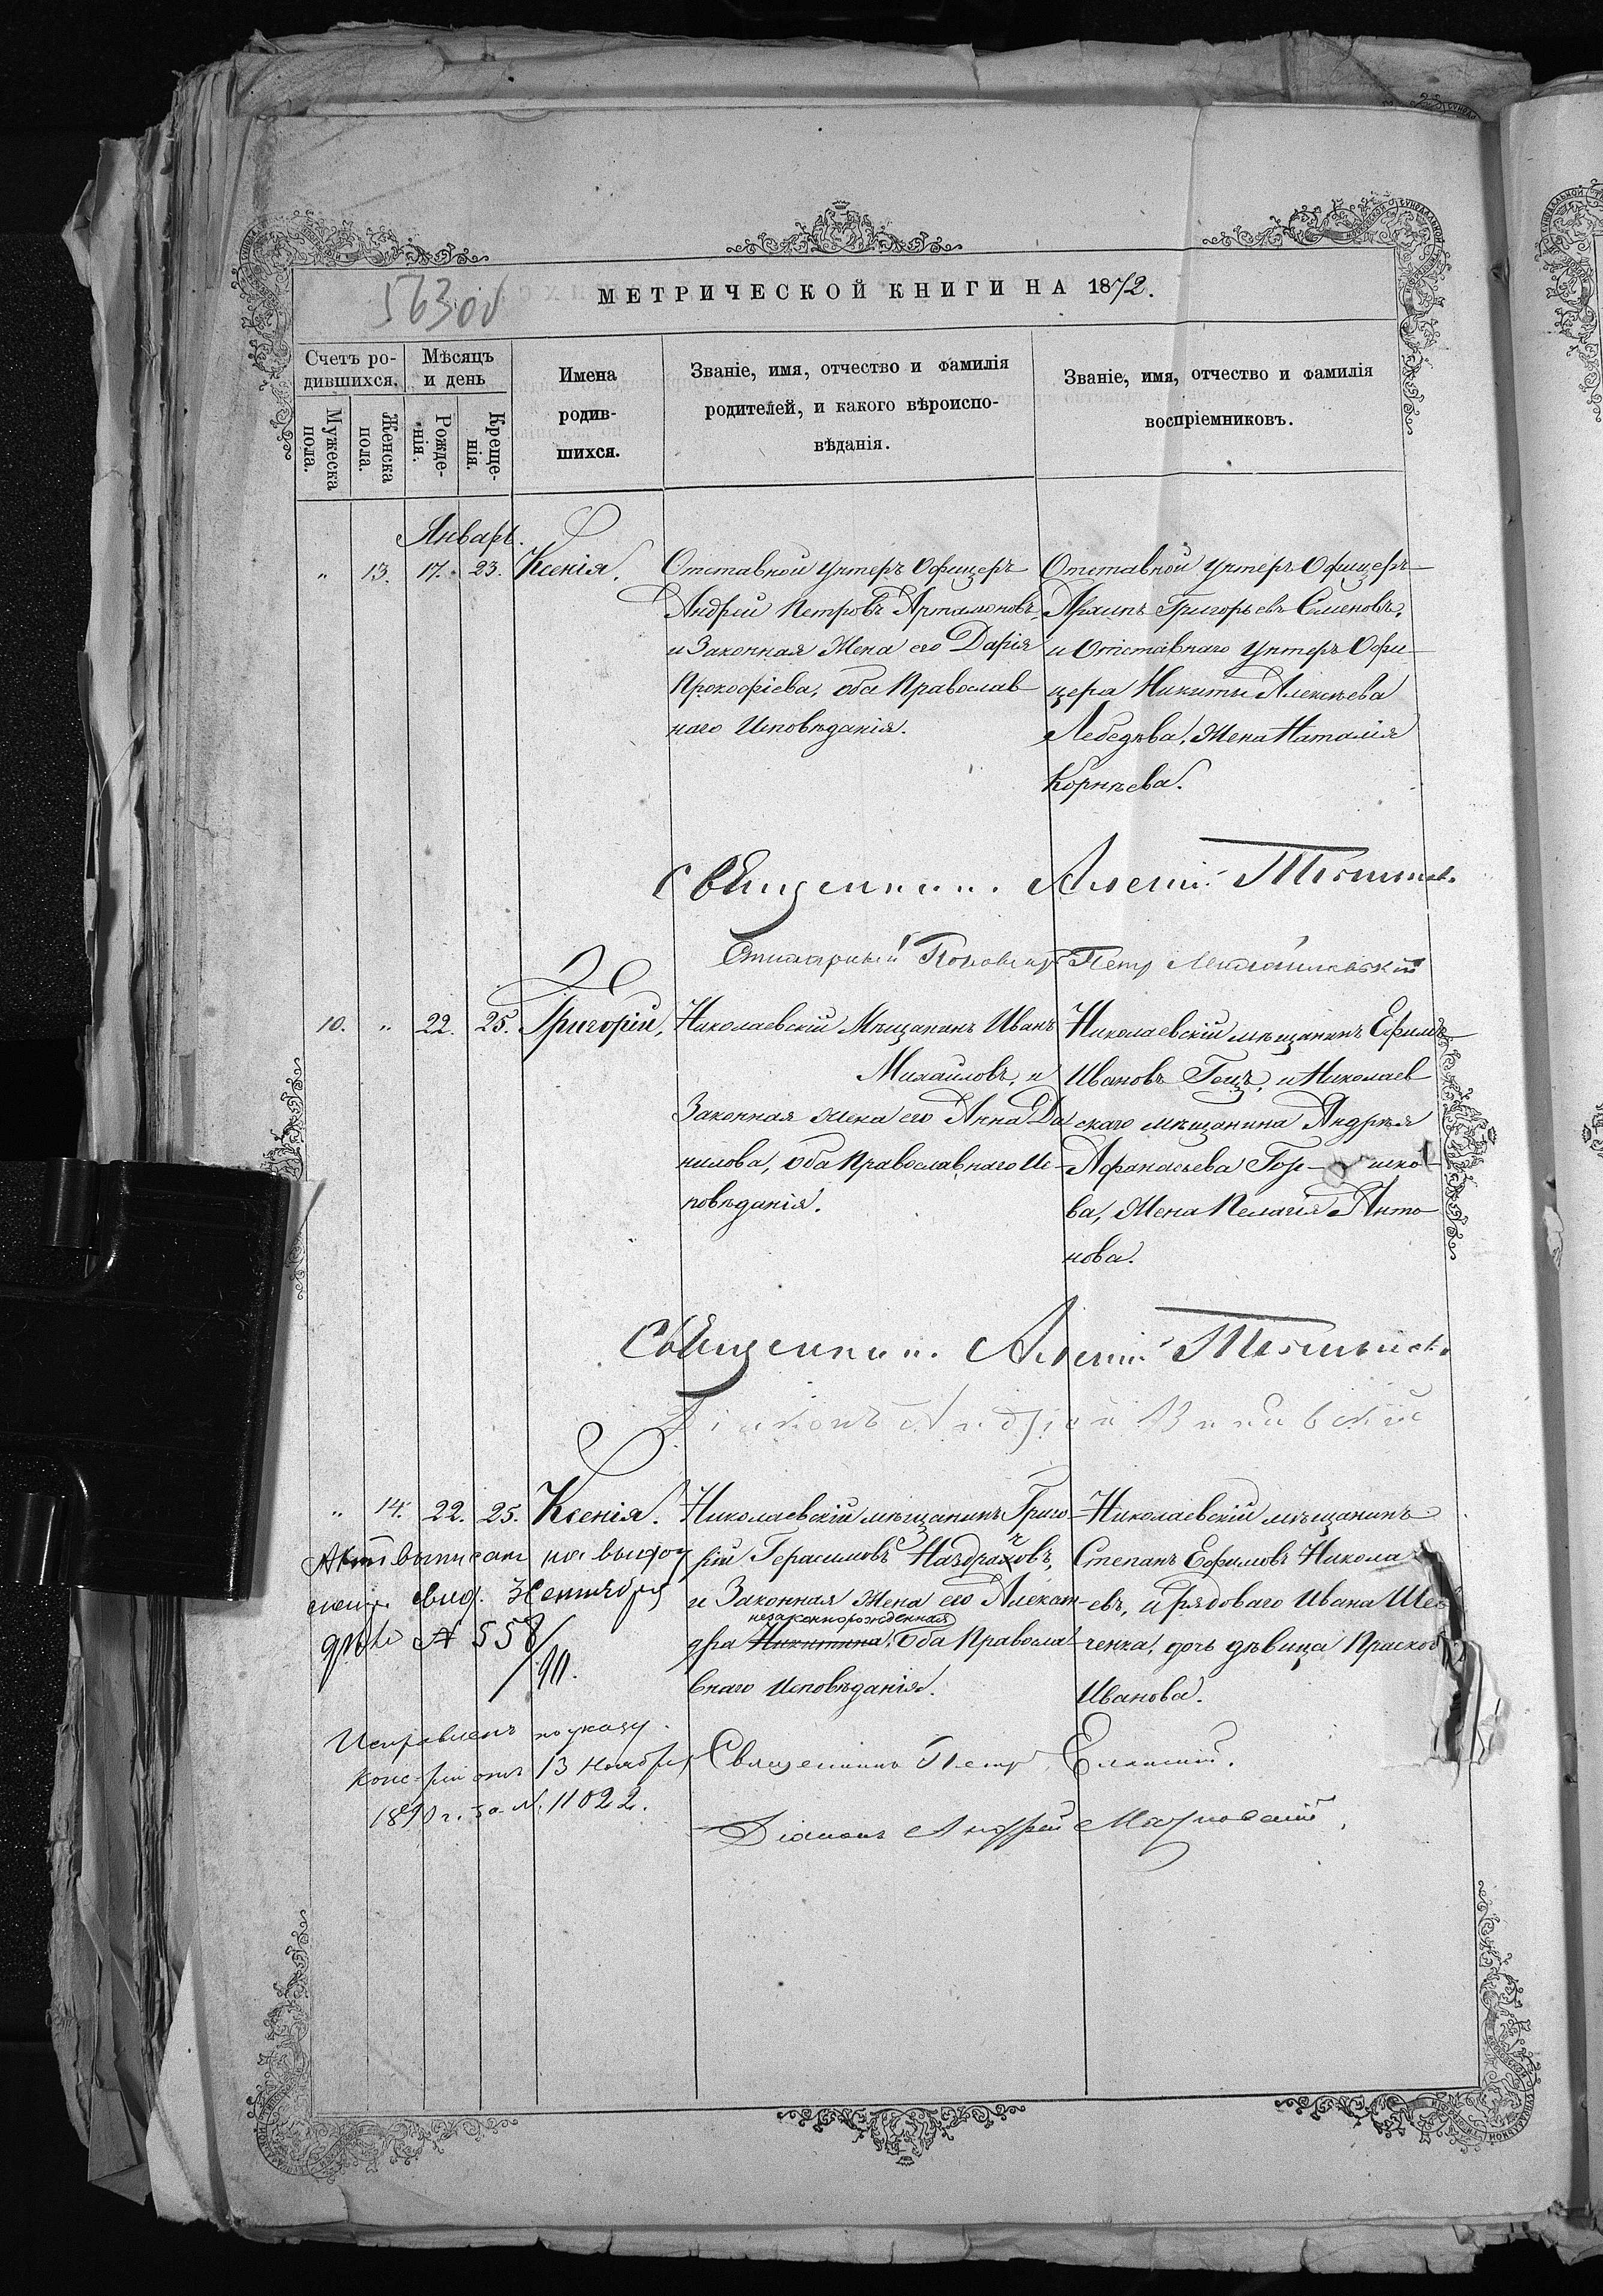 5630
МЕТРИЧЕСКОЙ КНИГИ НА 1872.
Счетъ ро-
дившихся.
Мѣсяцъ
и день
Имена
родив-
шихся.
Званіе, имя, отчество и фамилія
родителей, и какого вѣроиспо-
вѣданія.
Званіе, имя, отчество и фамилія
воспріемниковъ.
Мужеска
пола.
Женска
пола.
Рожде-
нія.
Креще-
нія.
Январь.
" 13. 17. 23. Ксенія.
Отставной Унтеръ Офицеръ
Андрей Петровъ Артамоновъ,
и Законная Жена его Дарія
Прокофіева, оба Православ
наго Исповѣданія.
Отставной Унтеръ Офицеръ
Григорьевъ
и Отставнаго Унтеръ Офи
цера Никиты Алексѣева
Лебедѣва, Жена Наталія
Корнѣева.
Священникъ Алексій
Петръ
10. " 22. 25. Григорій,
Николаевскій Мѣщанинъ Иванъ
Михайловъ, и
Законная жена его Анна Да
нилова, оба Православнаго Ис-
повѣданія.
Николаевскій мѣщанинъ Ефимъ
Ивановъ Гецъ, и Николаев
скаго мѣщанина Андрѣя
Афанасьева Гор- шко
ва, Жена Пелагія Анто
нова.
Священникъ Алексій
Діаконъ Андрей
" 14. 22. 25. Ксенія.
Николаевскій мѣщанинъ Григо
рій Герасимовъ Наздрачовъ,
и Законная Жена его Алексан-
незаконнорожденная
дра Никитина, Оба Правосла
внаго Исповѣданія.
Николаевскій мѣщанинъ
Степанъ Ефимовъ Никола
евъ, и рядоваго Ивана Шев
ченка, дочь дѣвица Прасков
Иванова.
Актъ выписанъ
свид.
№ 558/90.
Исправленъ по указу
Конс-ріи отъ 13 Ноября
1890 г. за №. 11022.
Священникъ Петръ
Діаконъ Андрей